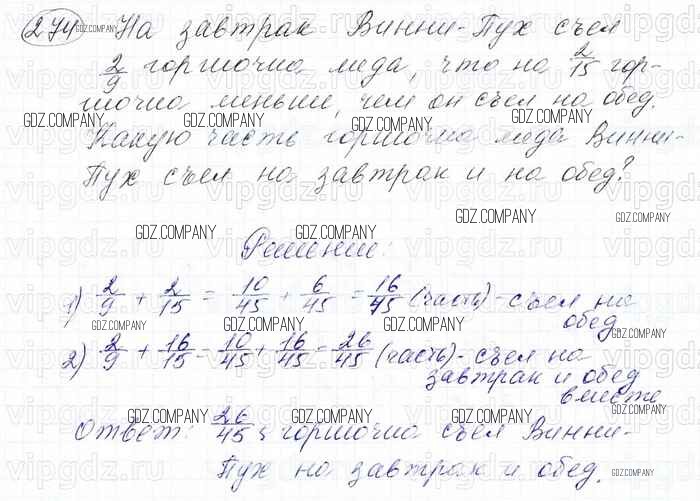 274 На завтрак Винни-Пух съел
2/9 горшочка меда, что на 2/15 гор-
шочка меньше, чем он съел на обед.
Какую часть горшочка меда Винни-
Пух съел на завтрак и на обед?
Решение:
1) 2/9 + 2/15 = 10/45 + 6/45 = 16/45 (часть) - съел на
обед
2) 2/9 + 16/15 = 10/45 + 16/45 = 26/45 (часть) - съел на
завтрак и обед
вместе
Ответ: 26/45 горшочка съел Винни-
Пух на завтрак и обед.
GDZ.COMPANY
vipgdz.ru